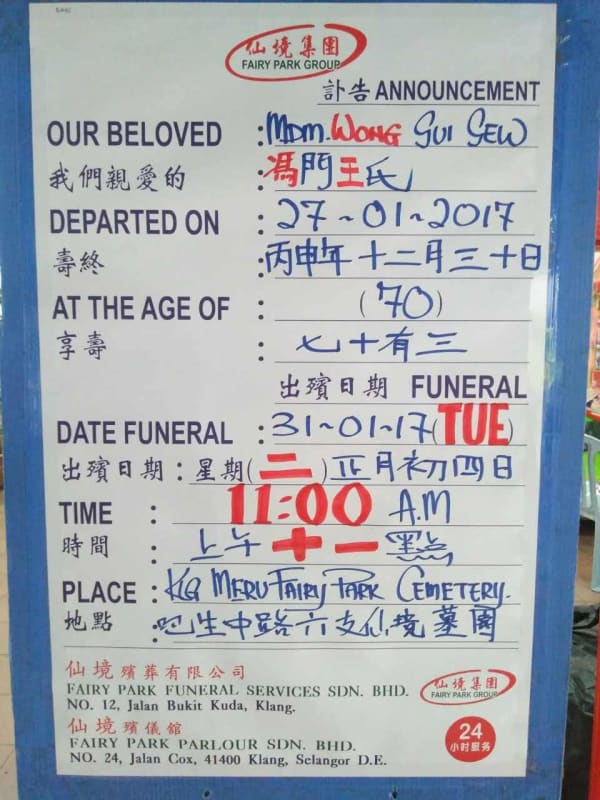 仙境集團
FAIRY PARK GROUP
訃告 ANNOUNCEMENT
OUR BELOVED : MDM. WONG GUI GEW
我們親愛的 : 馮門王氏
DEPARTED ON : 27-01-2017
壽終 : 丙申年十二月三十日
AT THE AGE OF : (70)
享壽 : 七十有三
出殯日期 FUNERAL
DATE FUNERAL : 31-01-17 (TUE)
出殯日期 : 星期(二) 正月初四日
TIME : 11:00 A.M
時間 : 上午十一點
PLACE : KG MERU FAIRY PARK CEMETERY.
地點 : 吧生中路六支仙境墓園
仙境殯葬有限公司
FAIRY PARK FUNERAL SERVICES SDN. BHD.
NO. 12, Jalan Bukit Kuda, Klang.
仙境集團
FAIRY PARK GROUP
仙境殯儀館
FAIRY PARK PARLOUR SDN. BHD.
NO. 24, Jalan Cox, 41400 Klang, Selangor D.E.
24
小时服务